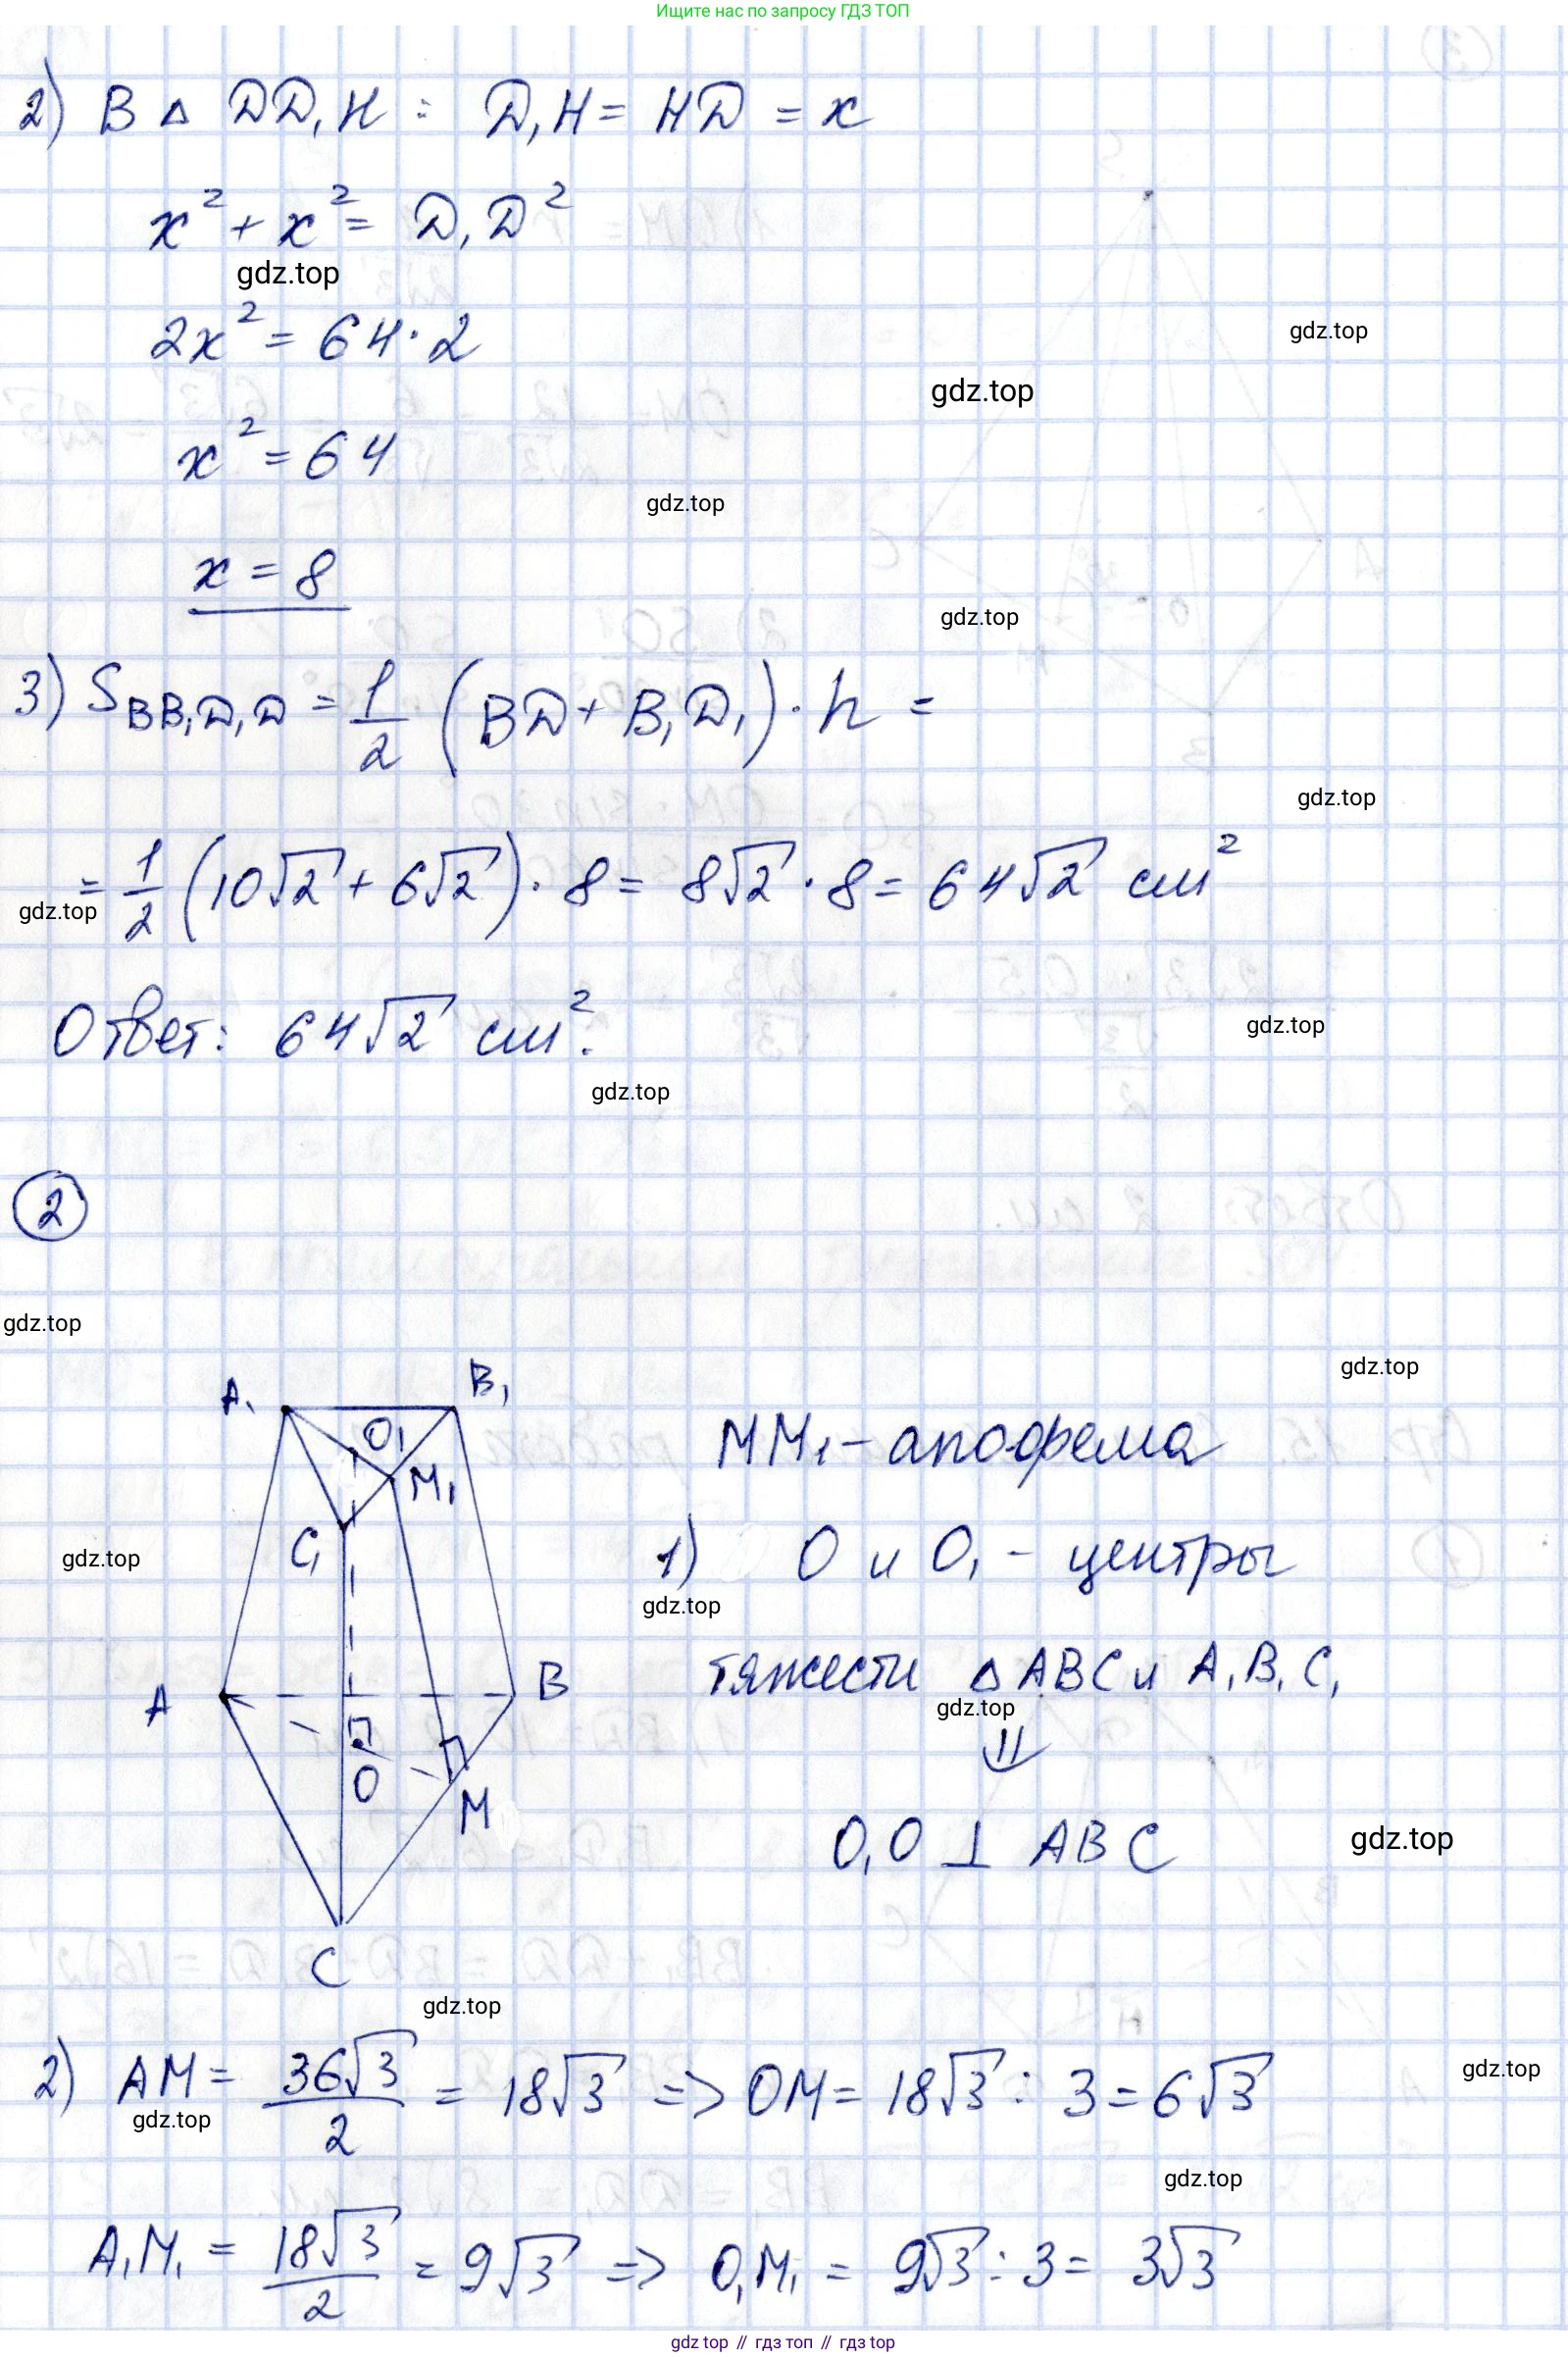 Ищите нас по запросу ГДЗ ТОП
2) В Δ DD₁H : D₁H = HD = x
x² + x² = D₁D²
gdz.top
2x² = 64·2
gdz.top
gdz.top
x² = 64
gdz.top
x = 8
gdz.top
3) S_BB₁D₁D = 1/2 (BD + B₁D₁)·h =
gdz.top
= 1/2 (10√2 + 6√2)·8 = 8√2·8 = 64√2 см²
gdz.top
Ответ: 64√2 см².
gdz.top
gdz.top
2
gdz.top
gdz.top
A₁ B₁
O₁
MM₁ - апофема
M₁
C₁
1) O и O₁ - центры
gdz.top
gdz.top
тяжести Δ ABC и A₁B₁C₁
A B
gdz.top
⇓
O
M
O₁O ⊥ ABC
gdz.top
C
gdz.top
2) AM = 36√3/2 = 18√3 => OM = 18√3 : 3 = 6√3
gdz.top
gdz.top
gdz.top
A₁M₁ = 18√3/2 = 9√3 => O₁M₁ = 9√3 : 3 = 3√3
gdz top // гдз топ // гдз top